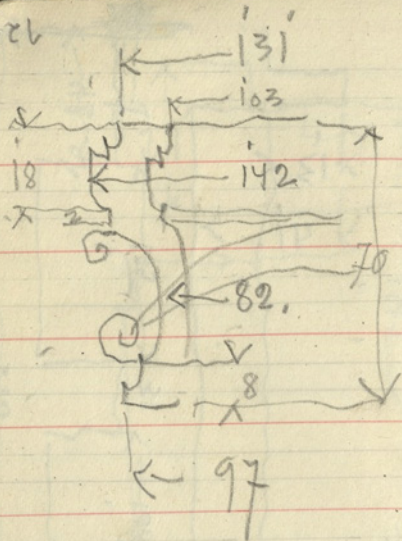 131
103
18
142
70
82.
8
97